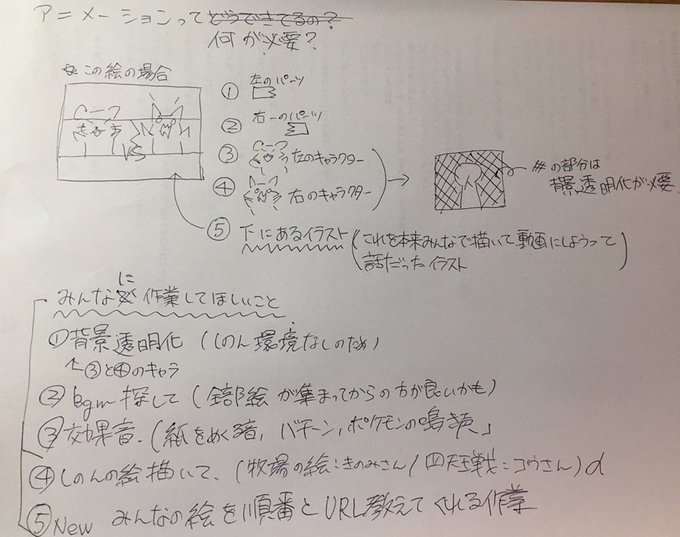 アニメーションってどうできてるの?
何が必要?
この絵の場合
VS
① 左のパーツ
② 右のパーツ
③ 左のキャラクター
④ 右のキャラクター
⑤ 下にあるイラスト (これを本来みんなで描いて動画にしようって
話だったイラスト)
#の部分は
背景透明化が必要
みんなに作業してほしいこと
①背景透明化 (しのん環境なしのため)
↑③と④のキャラ
② bgm探して (全部絵が集まってからの方が良いかも)
③効果音. (紙をめくる音, バーン, ポケモンの鳴き声)
④しのんの絵描いて、(牧場の絵:きのみさん/四天王戦:コウさん)
⑤New みんなの絵を順番とURL教えてくれる作業